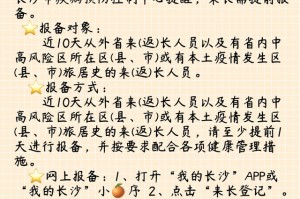 长沙市疾病预防控制中心提醒，来长需提前报
备。
报备对象：
近10天从外省来(返)长人员以及有省内中
高风险区所在区(县、市)或有本土疫情发生区
(县、市)旅居史的来(返)长人员。
报备方式：
近10天从外省来(返)长人员以及有省内中
高风险区所在区(县、市)或有本土疫情发生区
(县、市)旅居史的来(返)长人员，请至少提前1
天进行报备，并按要求配合各项健康管理措
施。
网上报备：1、打开“我的长沙”APP或
“我的长沙”小🍊序 2、点击“来长登记”。